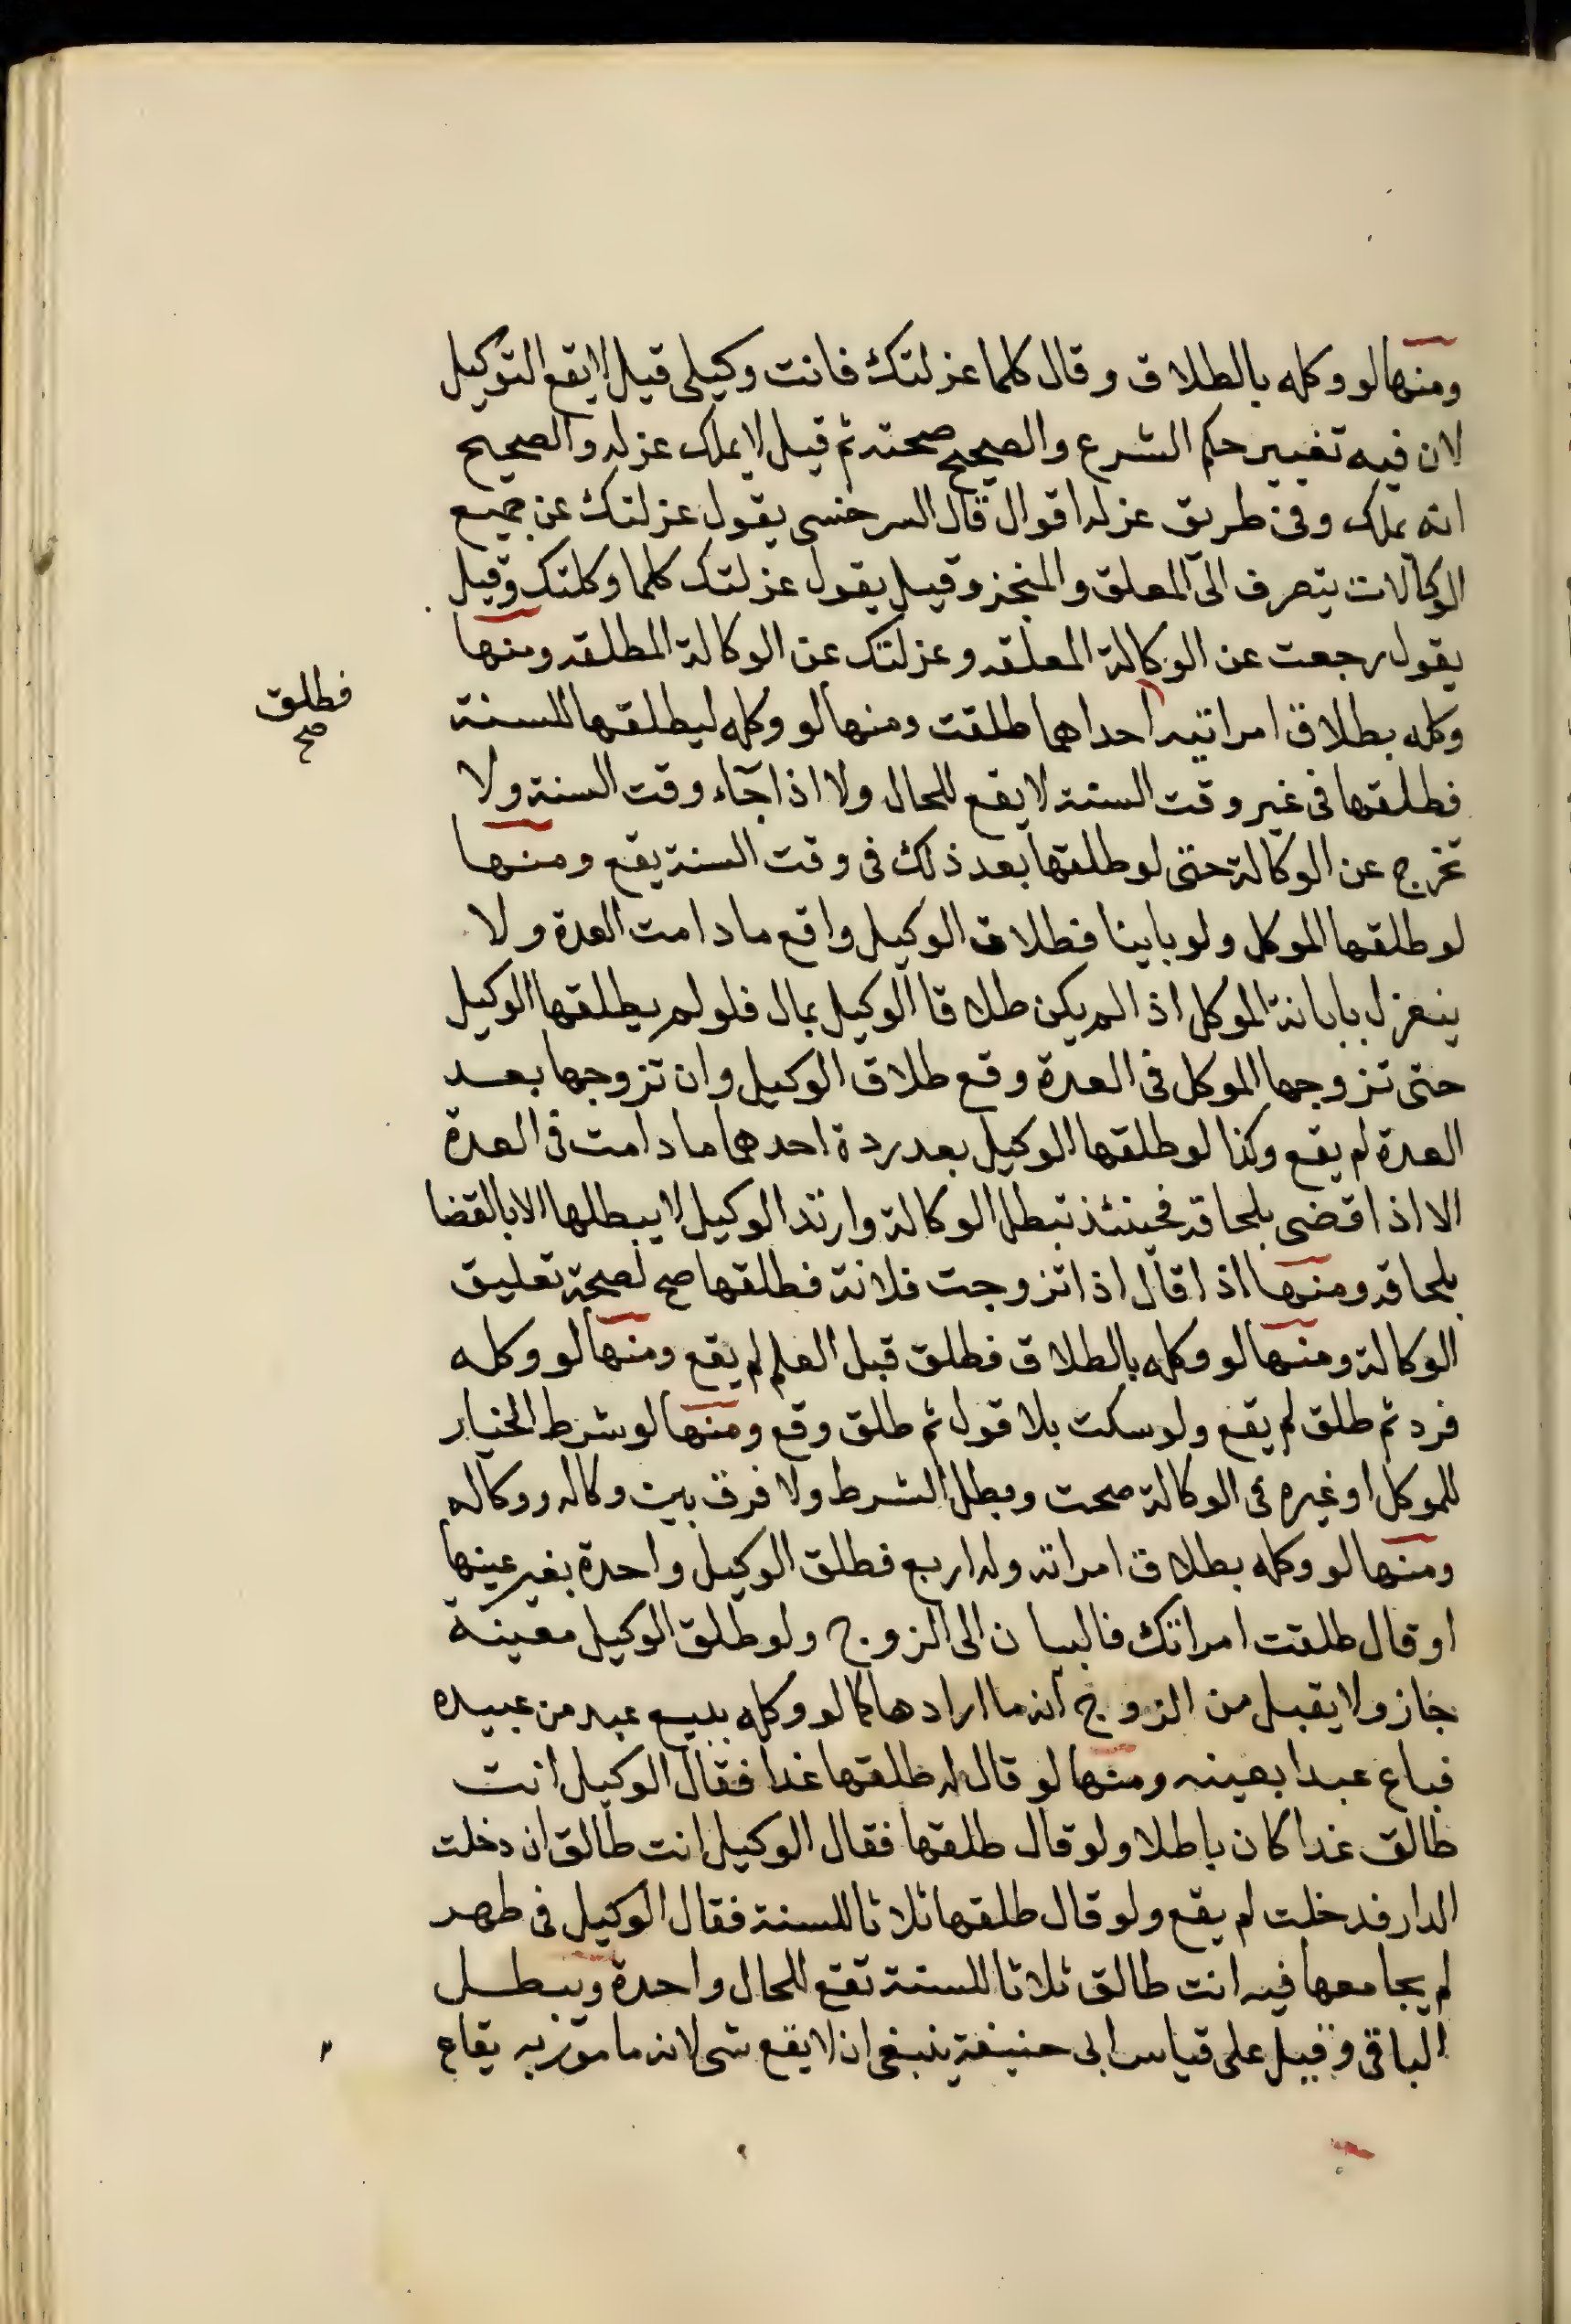 ومنها لو وكله بالطلاق وقال كلما عزلتك فانت وكيلى قيل لا يقع التوكيل
لان فيه تغيير حكم الشرع والصحيح صحته ثم قيل لا يملك عزله والصحيح
انه يملك وفى طريق عزله اقوال قال السرخسى يقول عزلتك عن جميع
الوكالات يتصرف الى المعلق والمنجز وقيل يقول عزلتك كلما وكلتك وقيل
يقول رجعت عن الوكالة المعلقه وعزلتك عن الوكالة المطلقه ومنها
وكله بطلاق امراتيه احداهما طلقت ومنها لو وكله ليطلقها للسنة
فطلق
صح
فطلقها فى غير وقت السنة لا يقع للحال ولا اذا جآء وقت السنة ولا
تخرج عن الوكالة حتى لو طلقها بعد ذلك فى وقت السنة يقع ومنها
لو طلقها الموكل ولو باينا فطلاق الوكيل واقع ما دامت العدة ولا
ينعزل بابانة الموكل اذا لم يكن طلاقا الوكيل بمال فلو لم يطلقها الوكيل
حتى تزوجها الموكل فى العدة وقع طلاق الوكيل وان تزوجها بعد
العدة لم يقع وكذا لو طلقها الوكيل بعد ردة احدهما ما دامت فى العدة
الا اذا قضى بلحاقه فحينئذ تبطل الوكالة وارتد الوكيل لا يبطلها الا بالقضا
بلحاقه ومنها اذا قال اذا تزوجت فلانة فطلقها صح لصحة تعليق
الوكالة ومنها لو وكله بالطلاق فطلق قبل العلم لم يقع ومنها لو وكله
فرد ثم طلق لم يقع ولو سكت بلا قول ثم طلق وقع ومنها لو شرط الخيار
للموكل او غيره فى الوكالة صحت وبطل الشرط ولا فرق بين وكاله ووكاله
ومنها لو وكله بطلاق امراته وله اربع فطلق الوكيل واحدة بغير عينها
او قال طلقت امراتك فالبيان الى الزوج ولو طلق الوكيل معينة
جاز ولا يقبل من الزوج انه ما ارادها كما لو وكله ببيع عبد من عبيده
فباع عبدا بعينه ومنها لو قال له طلقها غدا فقال الوكيل انت
طالق غدا كان باطلا ولو قال طلقها فقال الوكيل انت طالق ان دخلت
الدار فدخلت لم يقع ولو قال طلقها ثلاثا للسنة فقال الوكيل فى طهر
لم يجامعها فيه انت طالق ثلاثا للسنة تقع للحال واحدة ويبطل
الباقى وقيل على قياس ابى حنيفة ينبغى ان لا يقع شى لانه مامور به يقاع